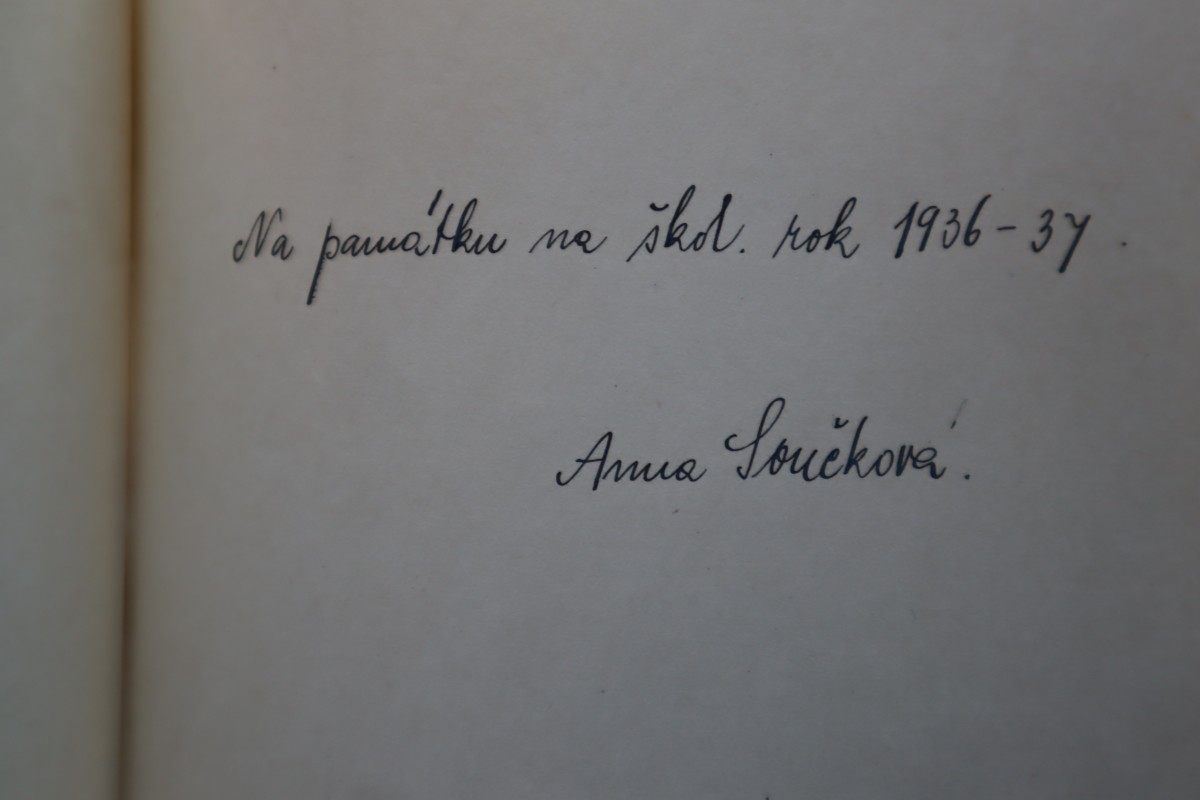 Na památku na škol. rok 1936-37.
Anna Součková.